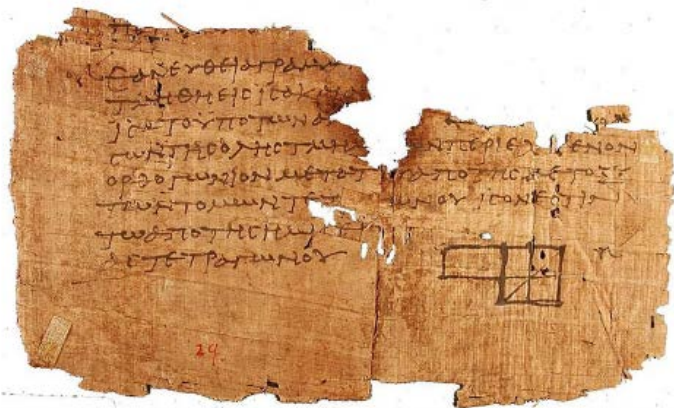 ΕΑΝ ΕΥΘΕΙΑ ΓΡΑΜΜ
ΤΜΗΘΗ ΕΙϹ ΙϹΑ ΚΑΙ Α
ΙϹΑ ΤΟ ΥΠΟ ΤΩΝ Α
ϹΩΝ ΤΗϹ ΟΛΗϹ ΤΜΗ ΩΝ ΠΕΡΙΕΧ ΜΕΝΟΝ
ΟΡΘΟΓΩΝΙΟΝ ΜΕΤΑ Τ ΑΠΟ ΤΗϹ ΜΕΤΟΞΥ
ΤΩΝ ΤΟΜΩΝ ΤΕΤ ΩΝΟΥ ΙϹΟΝ ΕϹΤΙΝ
ΤΩ ΑΠΟ ΤΗϹ ΗΜΙϹΕΙ
ΤΕΤΡΑΓΩΝΟΥ
29.